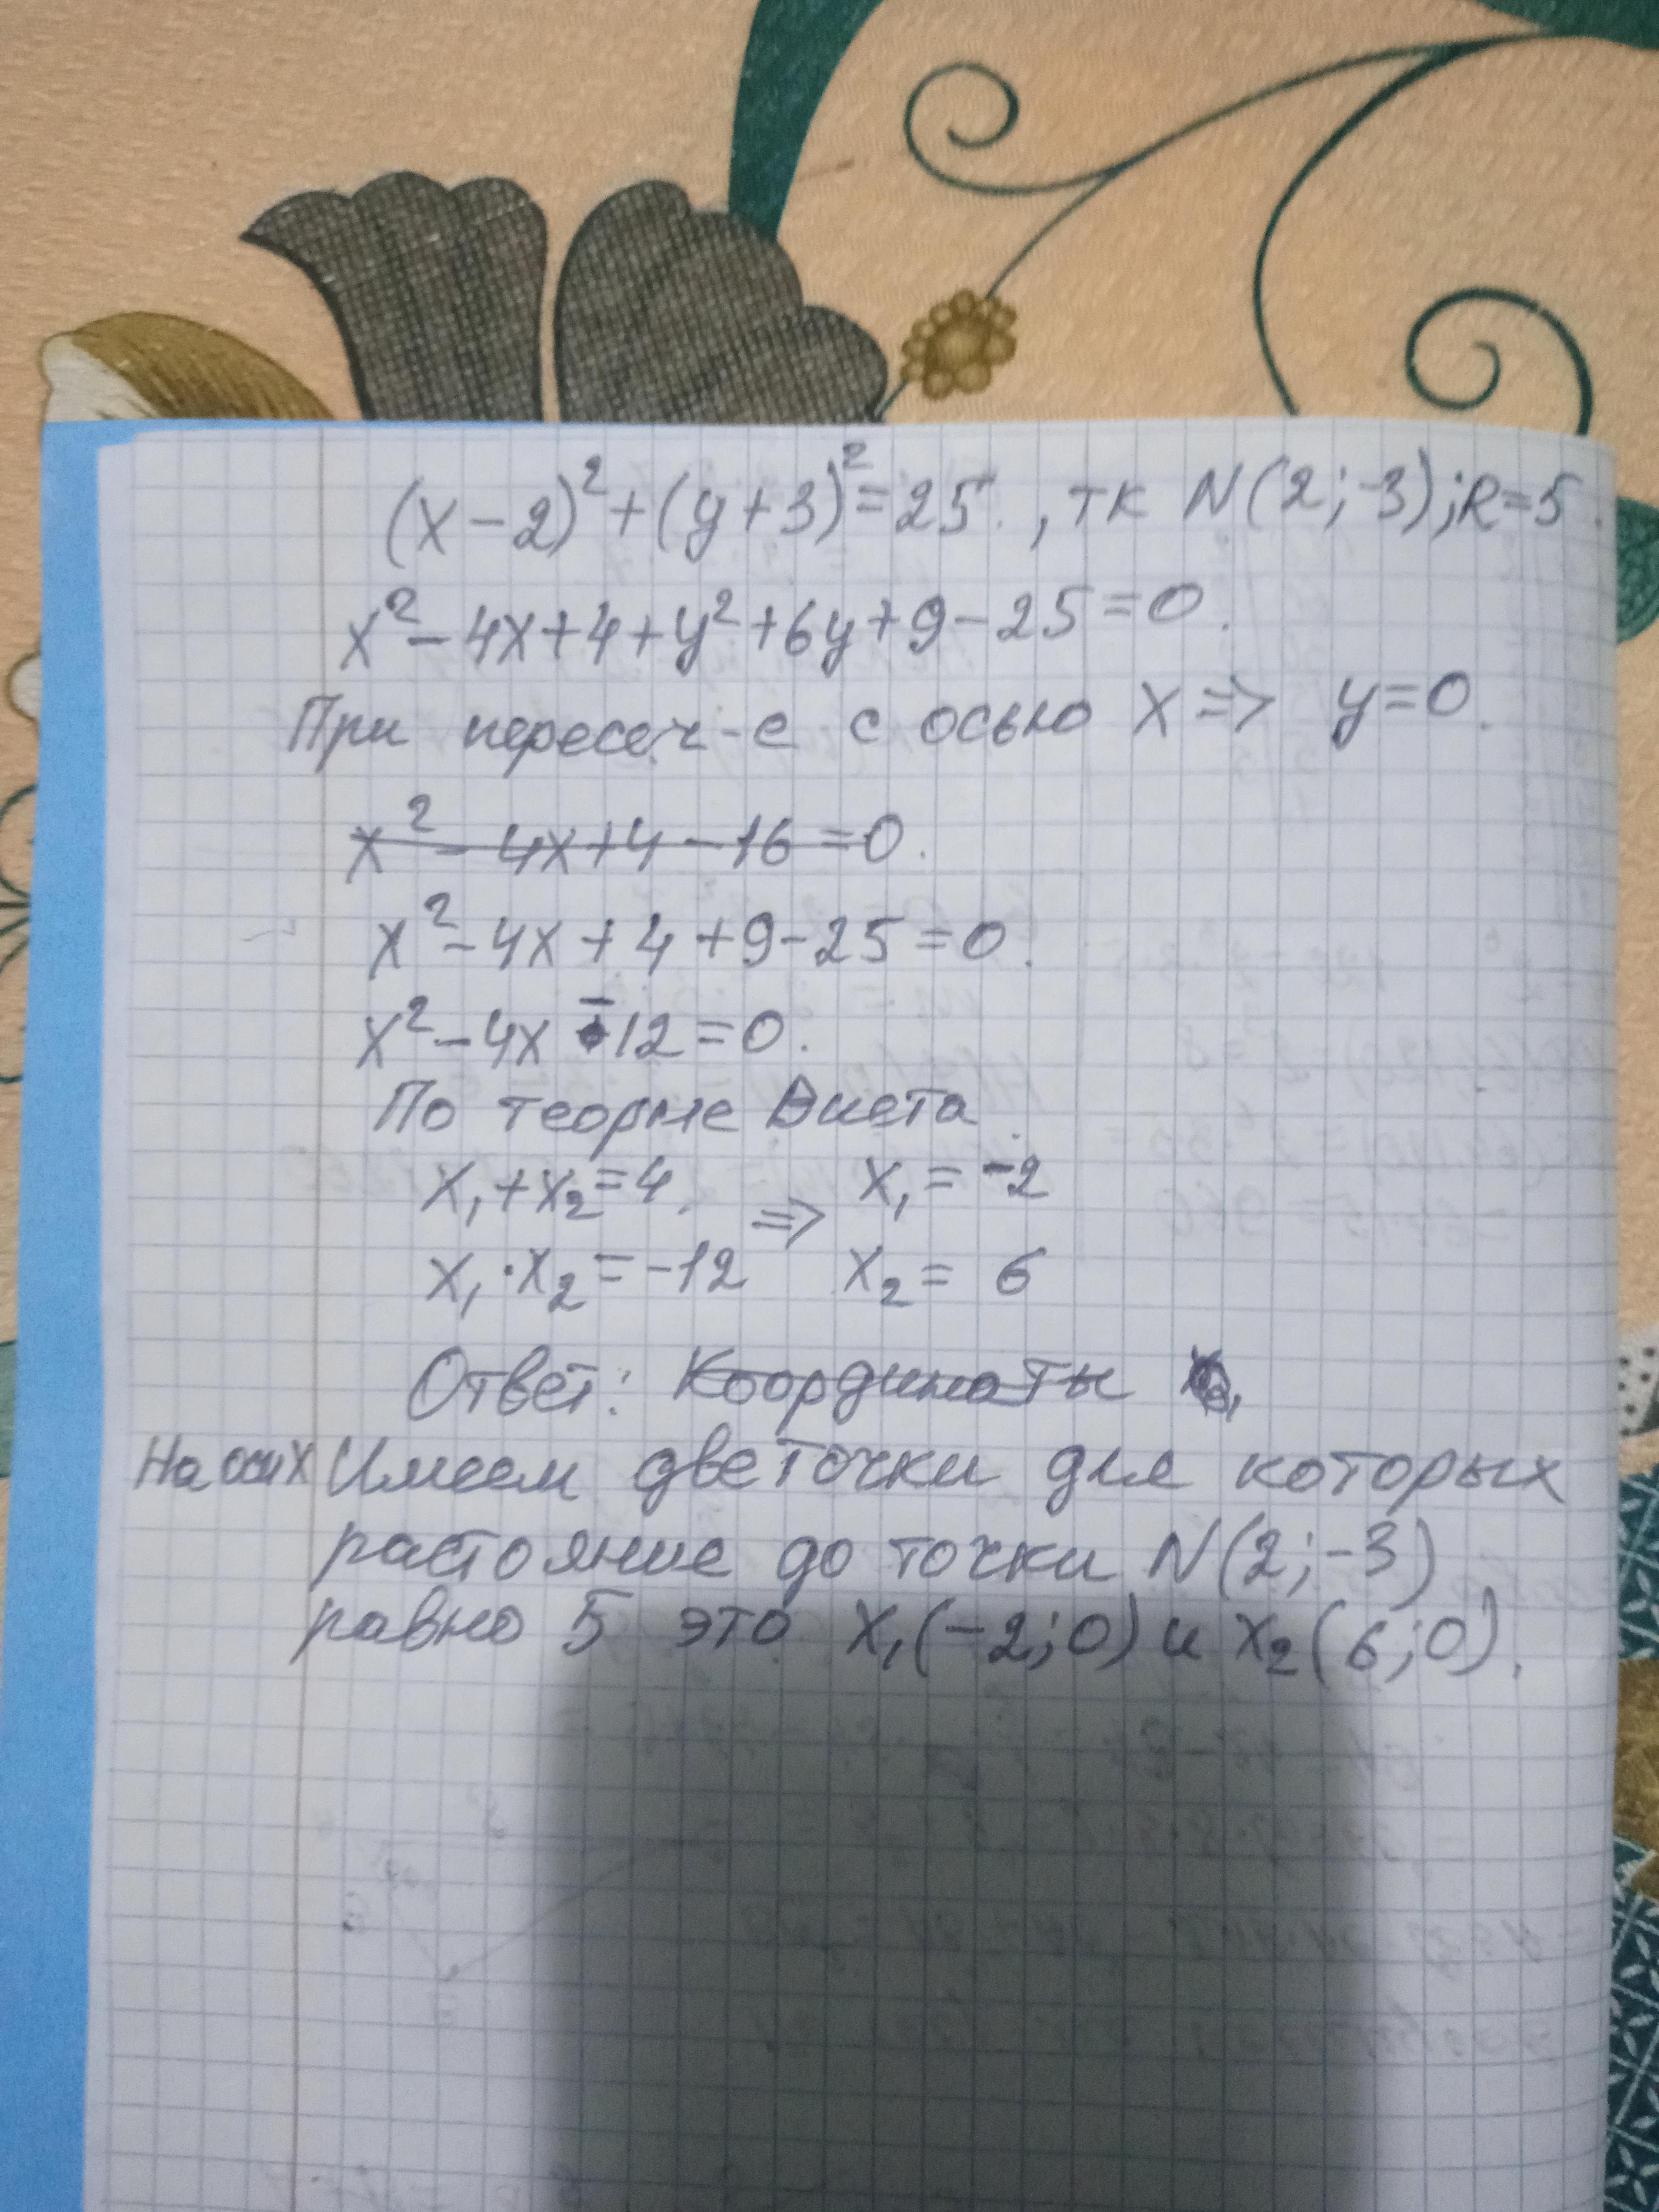 (x-2)²+(y+3)²=25., тк N(2;-3);R=5.
x²-4x+4+y²+6y+9-25=0.
При пересеч-е с осью X => y=0.
x²-4x+4-16=0.
x²-4x+4+9-25=0.
x²-4x-12=0.
По теорме Виета.
x₁+x₂=4. => x₁=-2
x₁·x₂=-12 x₂=6
Ответ: Координаты
На оси X Имеем две точки для которых
растояние до точки N(2;-3)
равно 5 это X₁(-2;0) и X₂(6;0).